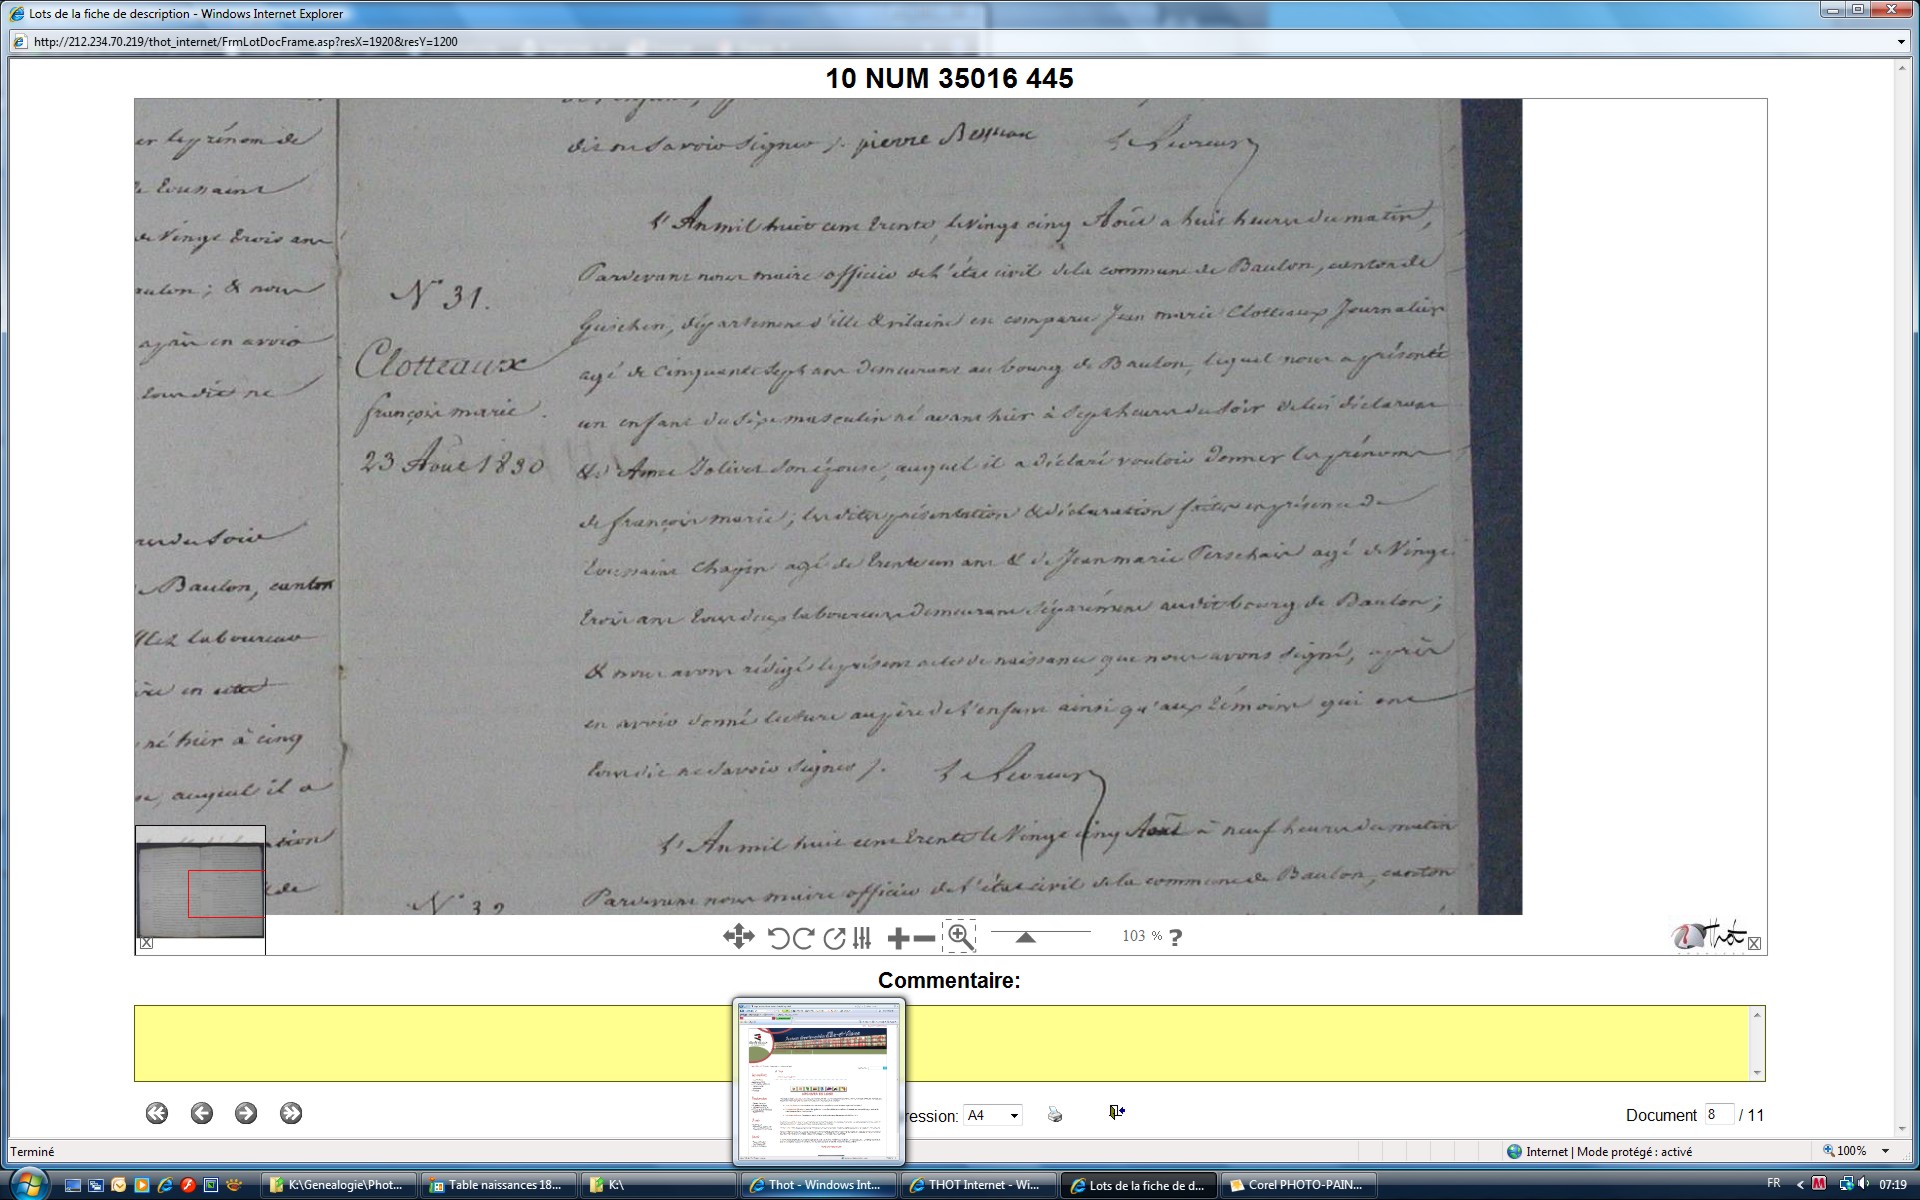 Lots de la fiche de description - Windows Internet Explorer
http://212.234.70.219/thot_internet/FrmLotDocFrame.asp?resX=1920&resY=1200
10 NUM 35016 445
er le prénom de
Toussaint
de Vingt trois ans
aulon; & nous
après en avoir
tous dit ne
du Soir
Baulon, canton
laboureur
né hier à cinq
auquel il a
dit ne Savoir Signer /. pierre
N° 31.
Clotteaux
françois marie
23 Août 1830
l'An mil huit cent trente, le Vingt cinq Août a huit heures du matin,
Pardevant nous maire officier de l'état civil de la commune de Baulon, canton de
Guichen, département d'ille & vilaine est comparu Jean marie Clotteaux Journalier
agé de cinquante Sept ans Demeurant au bourg de Baulon, lequel nous a présenté
un enfant du Sexe masculin né avant hier à Sept heures du Soir de lui déclarant
& d'Anne Jolivet Son épouse, auquel il a déclaré vouloir Donner les prénoms
de françois marie; les dites présentation & déclaration faites en présence De
Toussaint Chapin agé de trente un ans & de Jean marie Perschais agé de Vingt
trois ans tous deux laboureurs Demeurant Séparément audit bourg de Baulon;
& nous avons rédigé le présent acte de naissance que nous avons signé, après
en avoir donné lecture au père de l'enfant ainsi qu'aux témoins qui ont
tous dit ne Savoir Signer /.
l'An mil huit cent trente le Vingt cinq Août à neuf heures du matin
N° 32
Pardevant nous maire officier de l'état civil de la commune de Baulon, canton
103 % ?
Thot
Commentaire:
ression: A4
Document 8 / 11
Terminé
Internet | Mode protégé : activé
100%
K:\Genealogie\Phot...
Table naissances 18...
K:\
Thot - Windows Int...
THOT Internet - Wi...
Lots de la fiche de d...
Corel PHOTO-PAIN...
FR
07:19